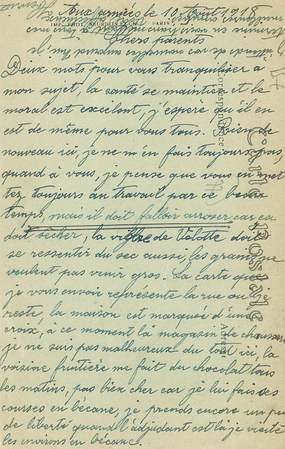 Aux armées le 10 Août 1918
Chers parents
Deux mots pour vous tranquiliser à
mon sujet, la santé se maintient et le
moral est excélent, j'espère qu'il en
est de même pour vous tous. Rien de
nouveau ici, je ne m'en fais toujours pas,
quand à vous, je pense que vous en met
tez toujours au travail par ce beau
temps, mais il doit falloir arroser car ça
doit sécher, la vigne de Velotte doit
se ressentir du sec aussi, les grains ne
veulent pas venir gros. La carte que
je vous envoir représente la rue où je
reste, la maison est marquoi d'une
croix, à ce moment la magasin de chaussures
je ne suis pas malheureux du tout ici, la
voisine fruitière me fait du chocolat tous
les matins, pas bien cher car je lui fais des
courses en bécane, je prends encore un peu
de liberté quand l'adjudant est là je visite
les environs en bécane.
Correspondance